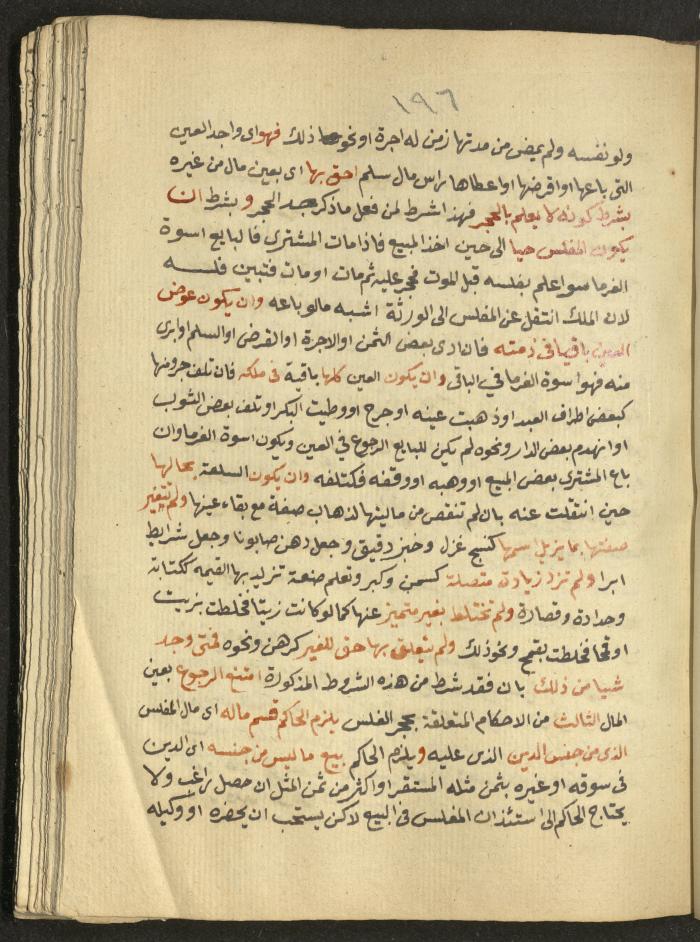 ١٩٦
ولو نفسه ولم يمض من مدتها زمن له اجرة او نحو ذلك فهو اى واجد العين
التى باعها او اقرضها او اعطاها راس مال سلم احق بها اى بعين ماله من غيره
بشرط كونه لا يعلم بالحجر فهذا شرط لمن فعل ما ذكر بعد الحجر وبشرط ان
يكون المفلس حيا الى حين اخذ المبيع فاذا مات المشترى فالبايع اسوة
الغرما سوا علم بفلسه قبل الموت فحجر عليه ثم مات او مات فتبين فلسه
لان الملك انتقل عن المفلس الى الورثة اشبه مالو باعه وان يكون عوض
العين باقيا فى ذمته فان ادى بعض الثمن او الاجرة او القرض او السلم او ابرى
منه فهو اسوة الغرما فى الباقى وان يكون العين كلها باقية فى ملكه فان تلف جزء منها
كبعض اطراف العبد او ذهبت عينه او جرح او وطيت البكر او تلف بعض الثوب
او انهدم بعض الدار ونحوه لم يكن للبايع الرجوع فى العين ويكون اسوة الغرما وان
باع المشترى بعض المبيع او وهبه او وقفه فكتلفه وان يكون السلعة بحالها
حين انتقلت عنه بان لم تنقص من ماليتها لذهاب صفة مع بقاء عينها ولم تتغير
صفتها بما يزيل اسمها كنسج غزل وخبز دقيق وجعل دهن صابونا وجعل شريط
ابرا ولم تزد زيادة متصلة كسمن وكبر وتعلم صنعة تزيد بها القيمه ككتابة
وحدادة وقصارة ولم تختلط بغير متميز عنها كما لو كانت زيتا فخلطت بزيت
او قمحا فخلطت بقمح ونحو ذلك ولم يتعلق بها حق للغير كرهن ونحوه فمتى وجد
شيا من ذلك بان فقد شرط من هذه الشروط المذكورة امتنع الرجوع بعين
المال الثالث من الاحكام المتعلقة بحجر الفلس يلزم الحاكم قسم ماله اى مال المفلس
الذى من جنس الدين الذى عليه ويلزم الحاكم بيع ما ليس من جنسه اى الدين
فى سوقه او غيره بثمن مثله المستقر او اكثر من ثمن المثل ان حصل راغب ولا
يحتاج الحاكم الى استئذان المفلس فى البيع لاكن يستحب ان يحضره او وكيله